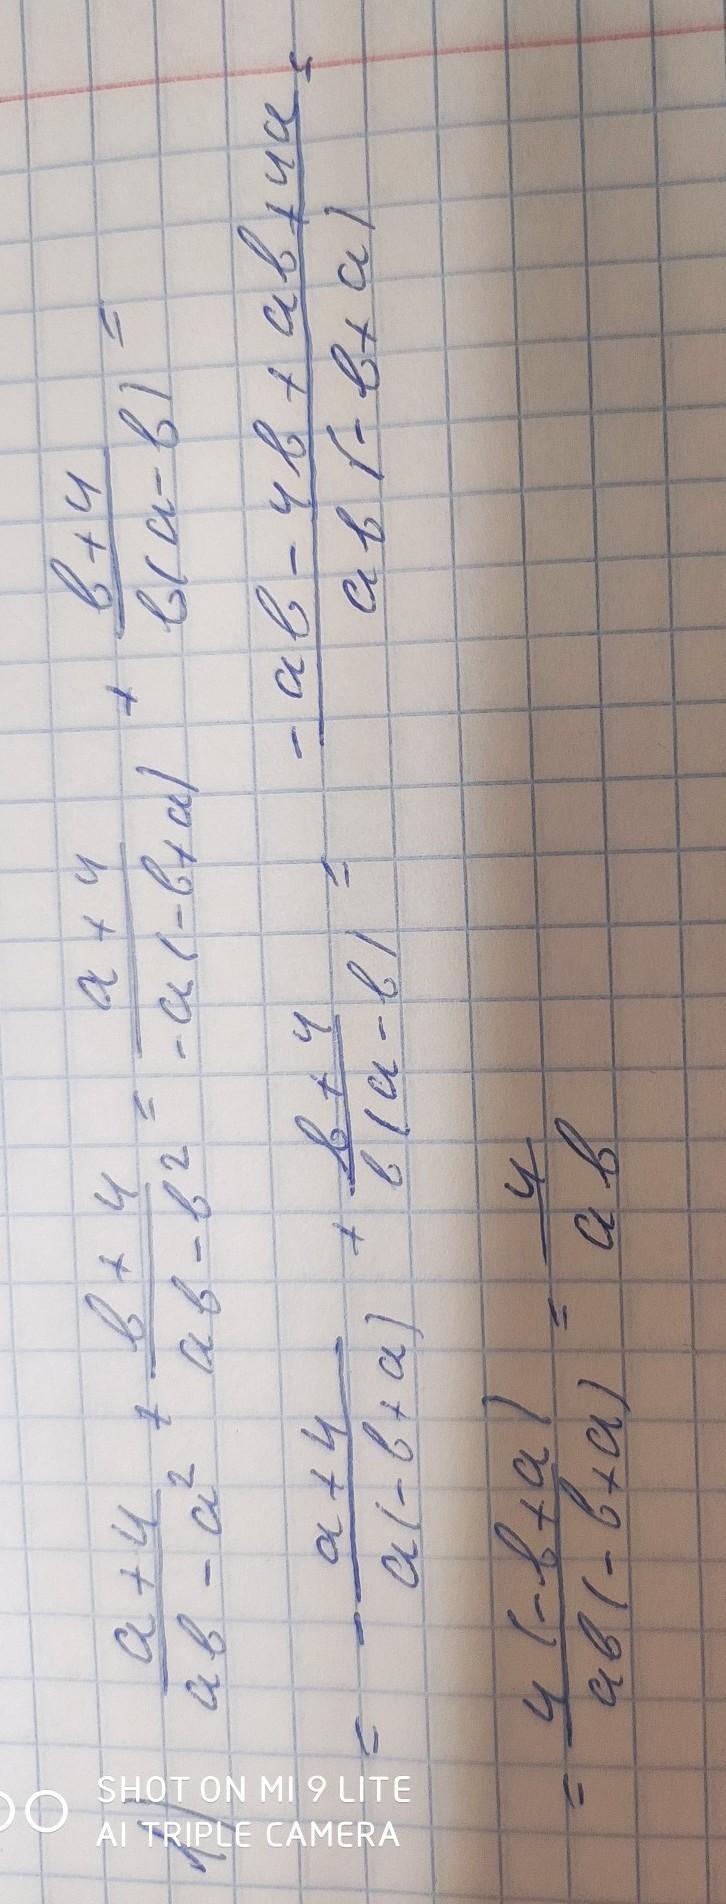 1) (a+4)/(ab-a²) + (b+4)/(ab-b²) = (a+4)/(-a(-b+a)) + (b+4)/(b(a-b)) =
= - (a+4)/(a(-b+a)) + (b+4)/(b(a-b)) = (-ab-4b+ab+4a)/(ab(-b+a)) =
= (4(-b+a))/(ab(-b+a)) = 4/(ab)
SHOT ON MI 9 LITE
AI TRIPLE CAMERA